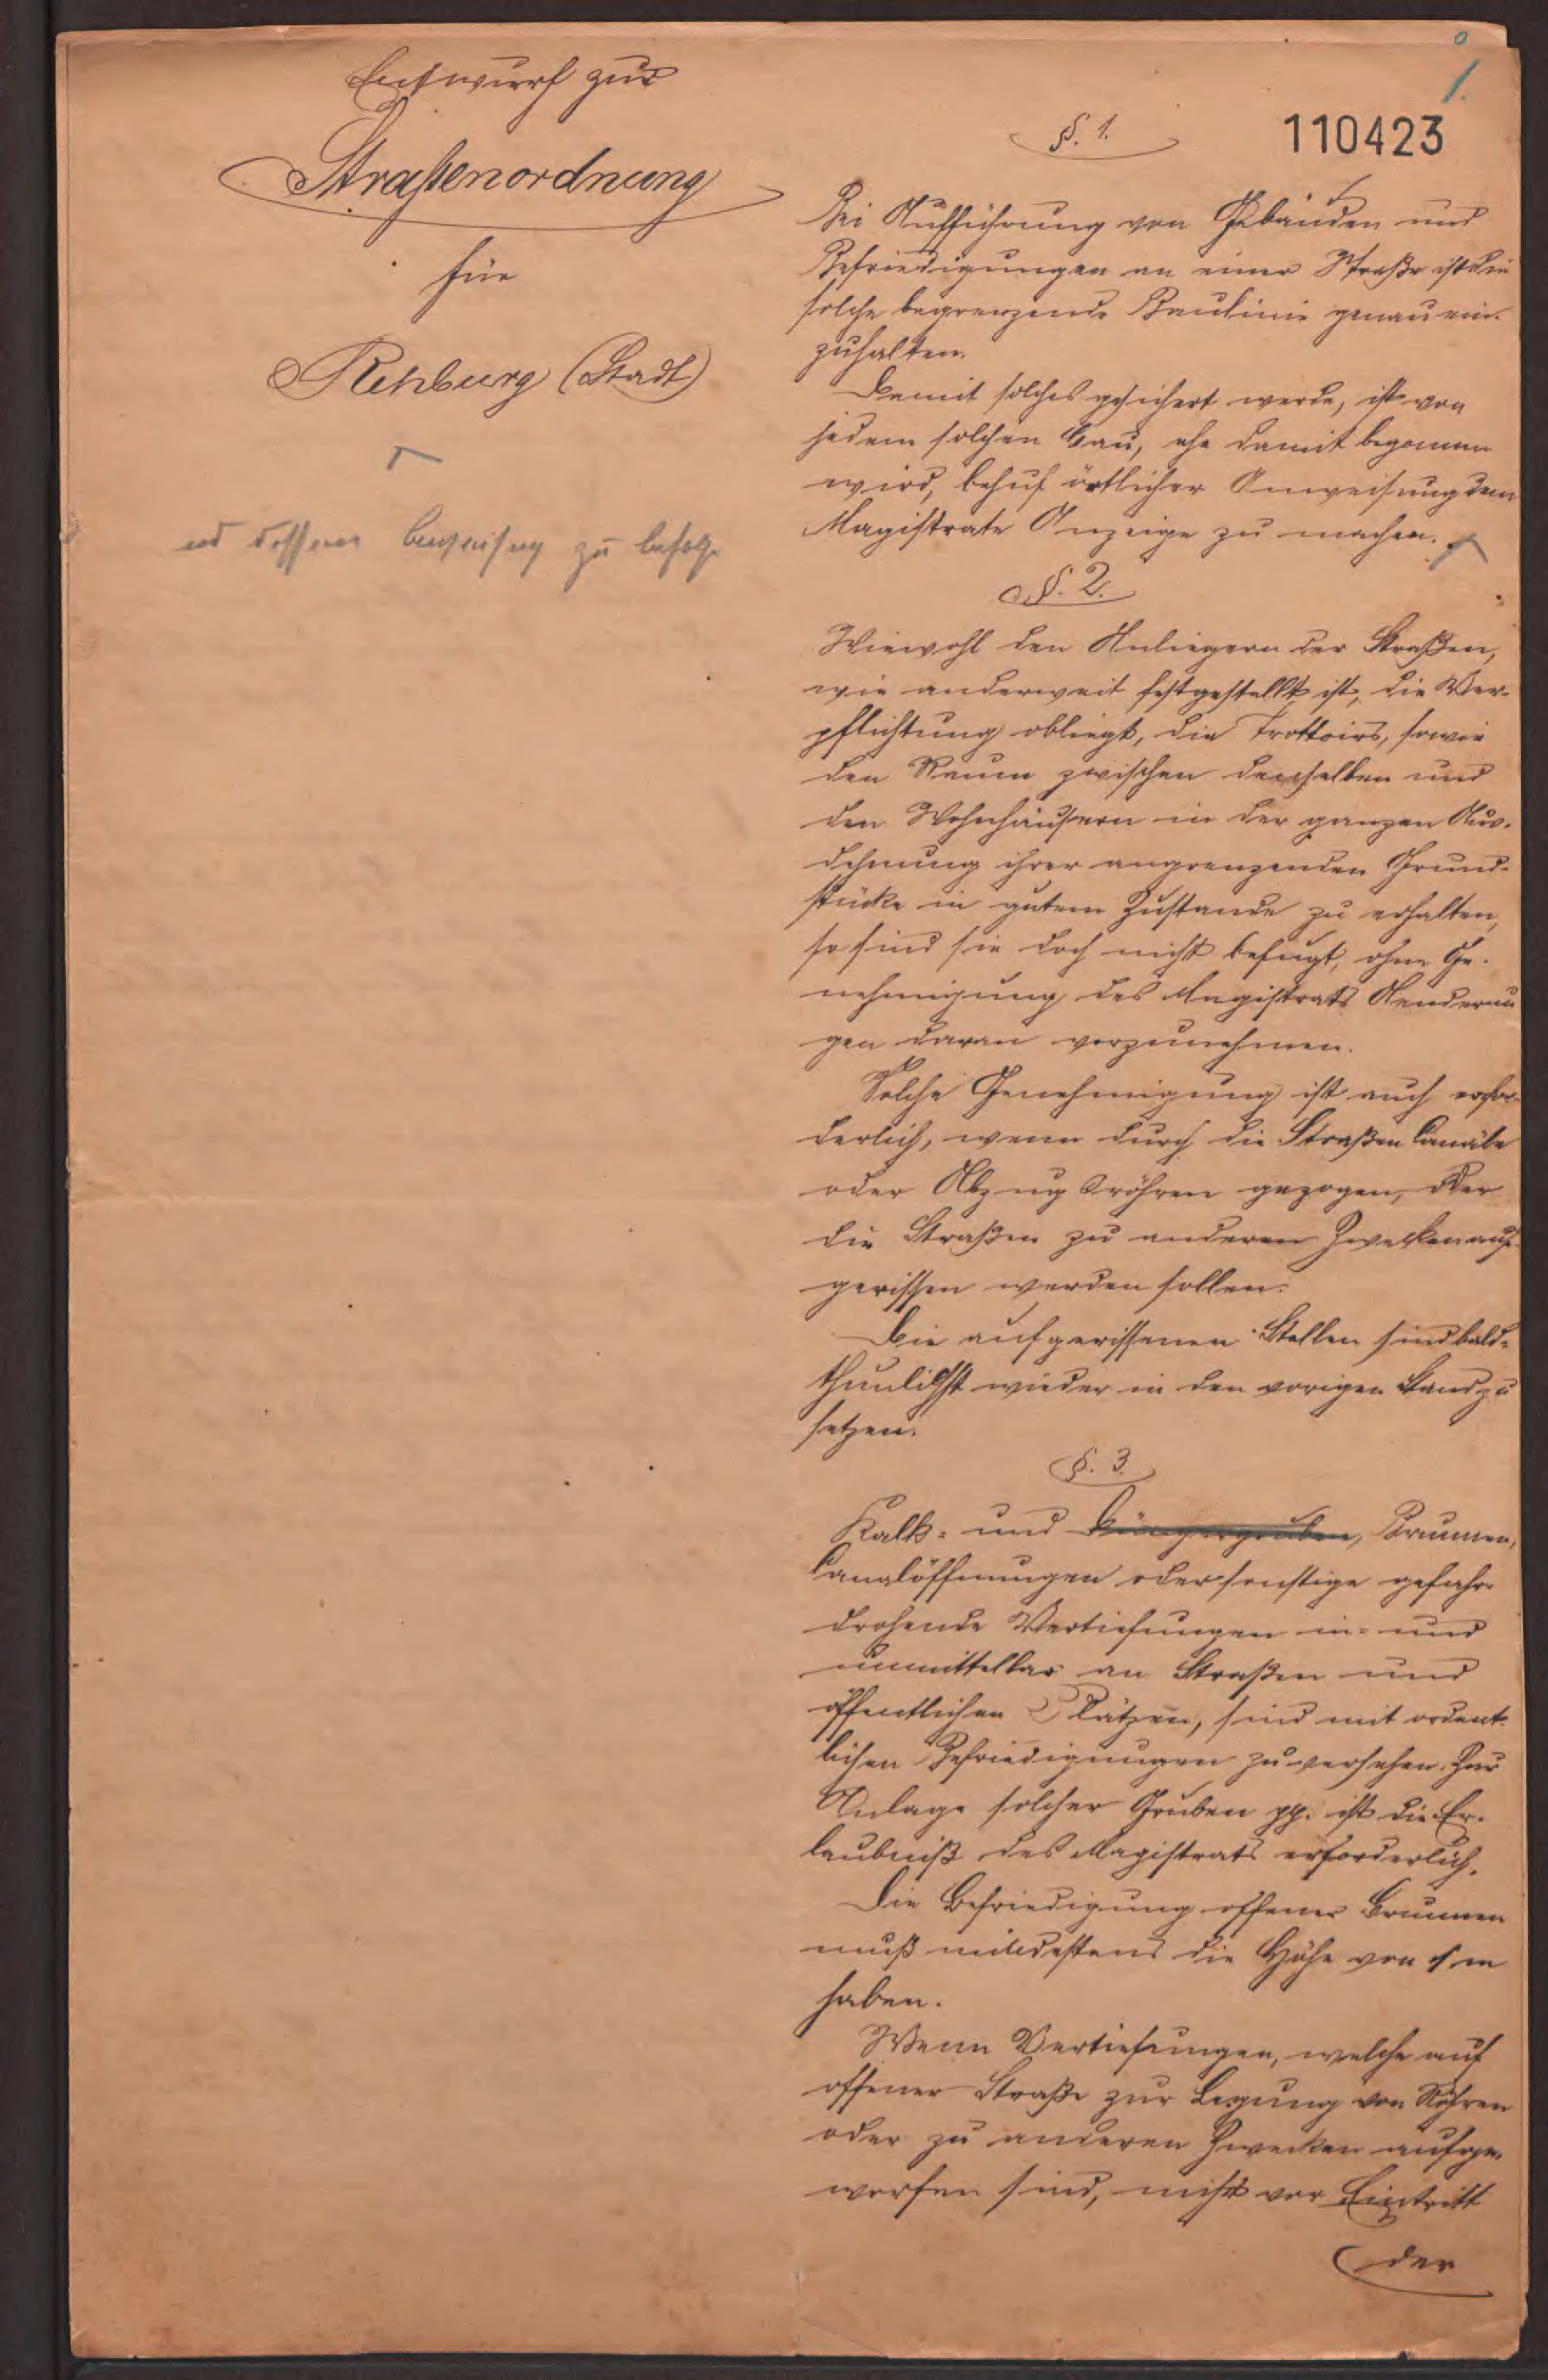 Entwurf zur
Straßenordnung
für
Rehburg (Stadt)
und dessen Anweisung zu befolgen
1.
110423
§. 1.
Bei Aufführung von Gebäuden und
Befriedigungen an einer Straße ist die
solche begrenzende Baulinie genau ein-
zuhalten.
Damit solches gesichert werde, ist von
jedem solchen Bau, ehe damit begonnen
wird, behuf örtlicher Anweisung dem
Magistrate Anzeige zu machen.
§. 2.
Wiewohl den Anliegern der Straßen,
wie anderweit festgestellt ist, die Ver-
pflichtung obliegt, die Trottoirs, sowie
den Raum zwischen denselben und
den Wohnhäusern in der ganzen Aus-
dehnung ihrer angrenzenden Grund-
stücke in gutem Zustande zu erhalten,
so sind sie doch nicht befugt, ohne Ge-
nehmigung des Magistrats Aenderun
gen daran vorzunehmen.
Solche Genehmigung ist auch erfor-
derlich, wenn durch die Straßen Canäle
oder Abzugsröhren gezogen, oder
die Straßen zu anderen Zwecken auf-
gerissen werden sollen.
Die aufgerissenen Stellen sind bald-
thunlichst wieder in den vorigen Stand zu
setzen.
§. 3.
Kalk- und Düngergruben, Brunnen,
Canalöffnungen oder sonstige gefahr-
drohende Vertiefungen in- und
unmittelbar an Straßen und
öffentlichen Plätzen, sind mit ordent-
lichen Befriedigungen zu versehen. Zur
Anlage solcher Gruben pp. ist die Er-
laubniß des Magistrats erforderlich.
Die Befriedigung offener Brunnen
muß mindestens die Höhe von 1 m
haben.
Wenn Vertiefungen, welche auf
offener Straße zur Legung von Röhren
oder zu anderen Zwecken aufge-
worfen sind, nicht vor Eintritt
der